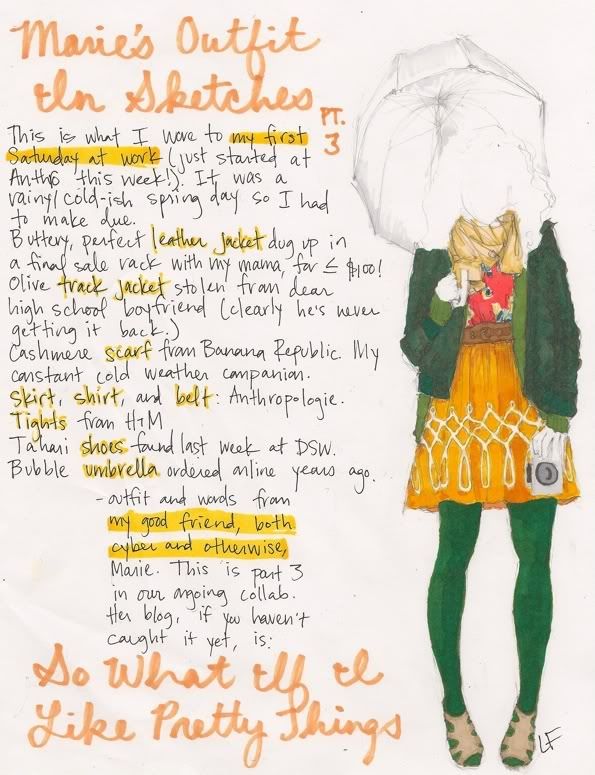 Marie's Outfit
In Sketches
PT.
3
This is what I wore to my first
Saturday at work (just started at
Anthro this week!). It was a
rainy/cold-ish spring day so I had
to make due.
Buttery, perfect leather jacket dug up in
a final sale rack with my mama, for ≤ $100!
Olive track jacket stolen from dear
high school boyfriend (clearly he's never
getting it back.)
Cashmere scarf from Banana Republic. My
constant cold weather companion.
skirt, shirt, and belt: Anthropologie.
Tights from H+M
Tahari shoes found last week at DSW.
Bubble umbrella ordered online years ago.
- outfit and words from
my good friend, both
cyber and otherwise,
Marie. This is part 3
in our ongoing collab.
Her blog, if you haven't
caught it yet, is:
So What If I
Like Pretty Things
LF